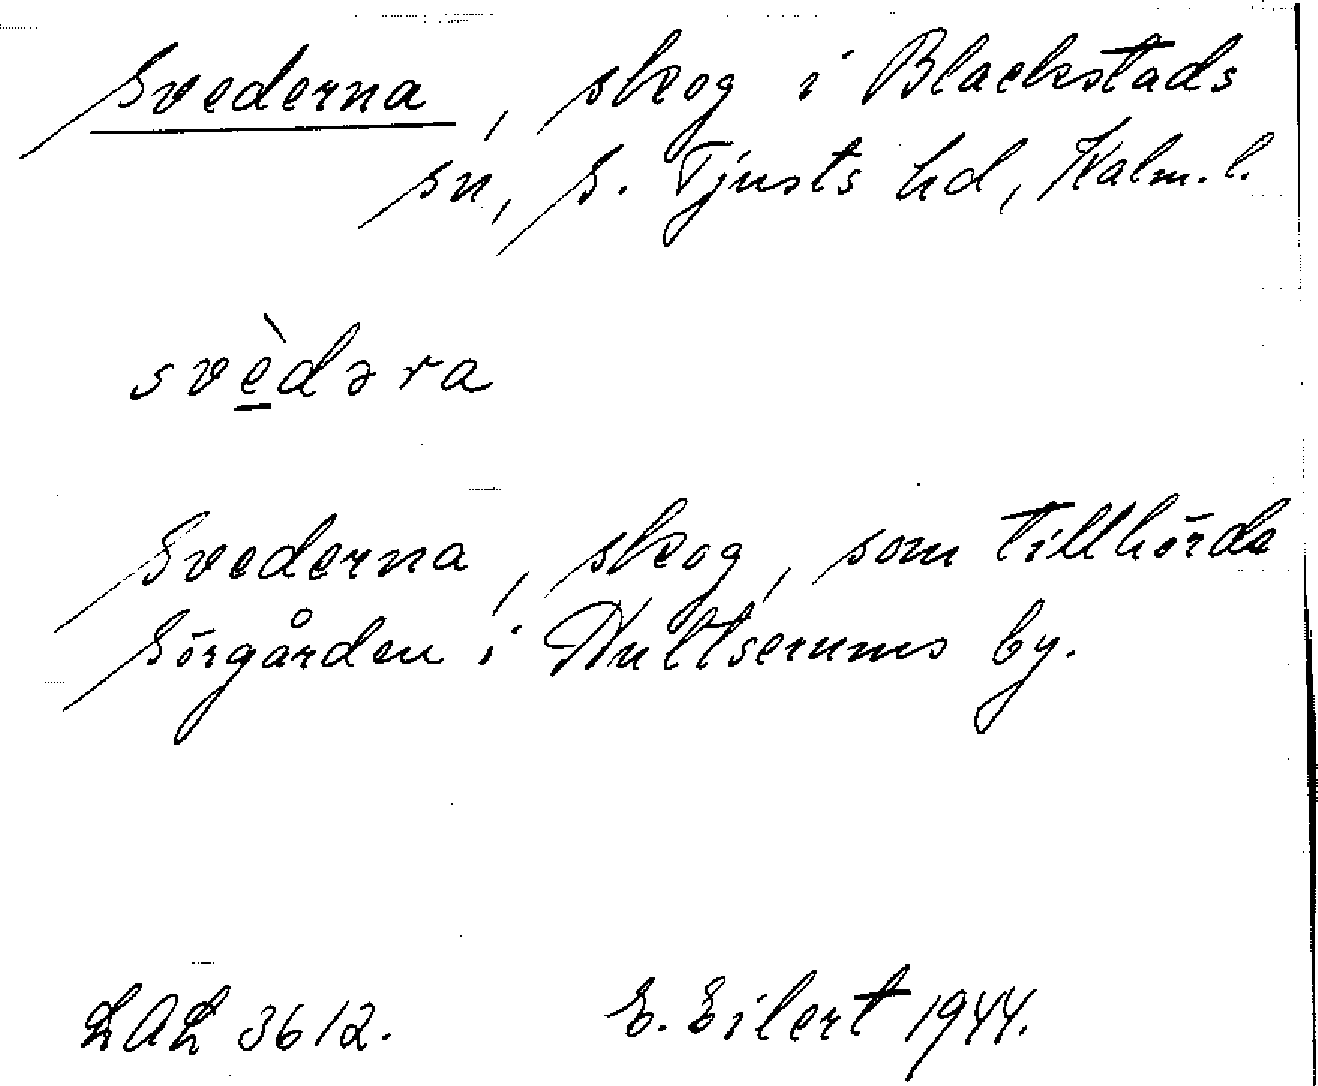 Svederna, skog i Blackstads
sn, S. Tjusts hd, Kalm. l.
svè̱dəra
Svederna, skog, som tillhörde
Sörgården i Hultserums by.
LAL 3612. E. Eilert 1944.